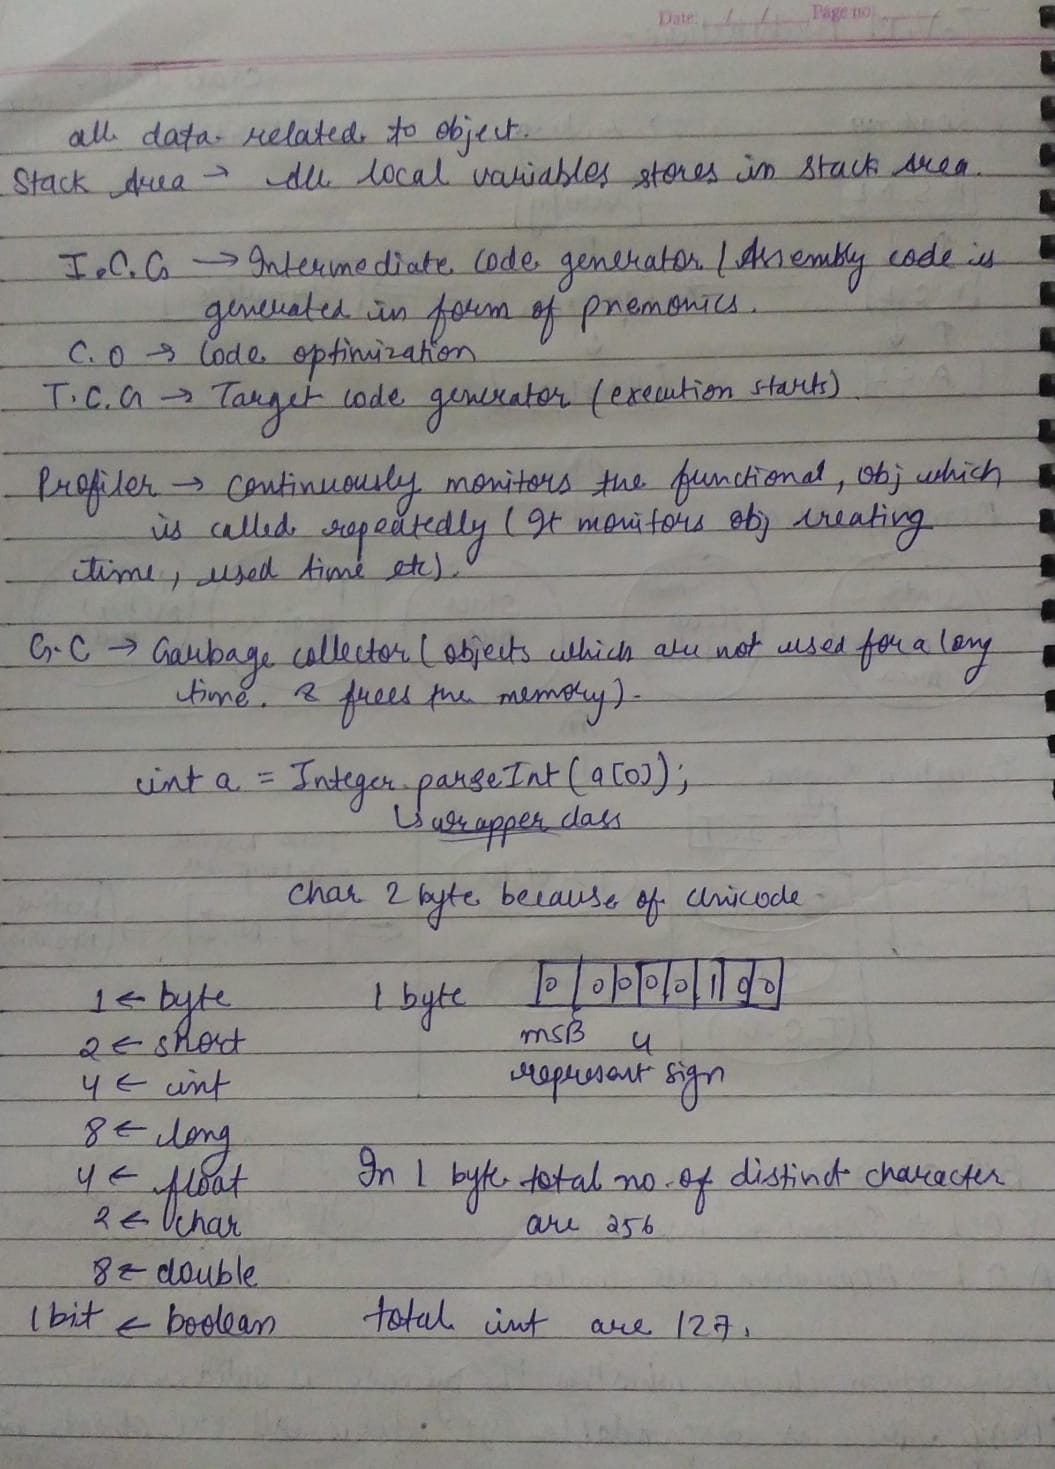 Date: / / Page no:
all data related to object.
Stack Area → All local variables stores in stack area.
I.C.G → Intermediate code generator / Assembly code is
generated in form of pnemonics.
C.O → Code optimization
T.C.G → Target code generator (execution starts)
Profiler → continuously monitors the functional, obj which
is called repeatedly (It monitors obj creating
time, used time etc).
G.C → Garbage collector (objects which are not used for a long
time. & frees the memory).
int a = Integer.parseInt(a[0]);
↳ wrapper class
Char 2 byte because of Unicode
1 ← byte
2 ← short
4 ← int
8 ← long
4 ← float
2 ← char
8 ← double
1 bit ← boolean
1 byte 0 0 0 0 0 1 0 0
MSB 4
represent sign
In 1 byte total no. of distinct character
are 256
total int are 127.